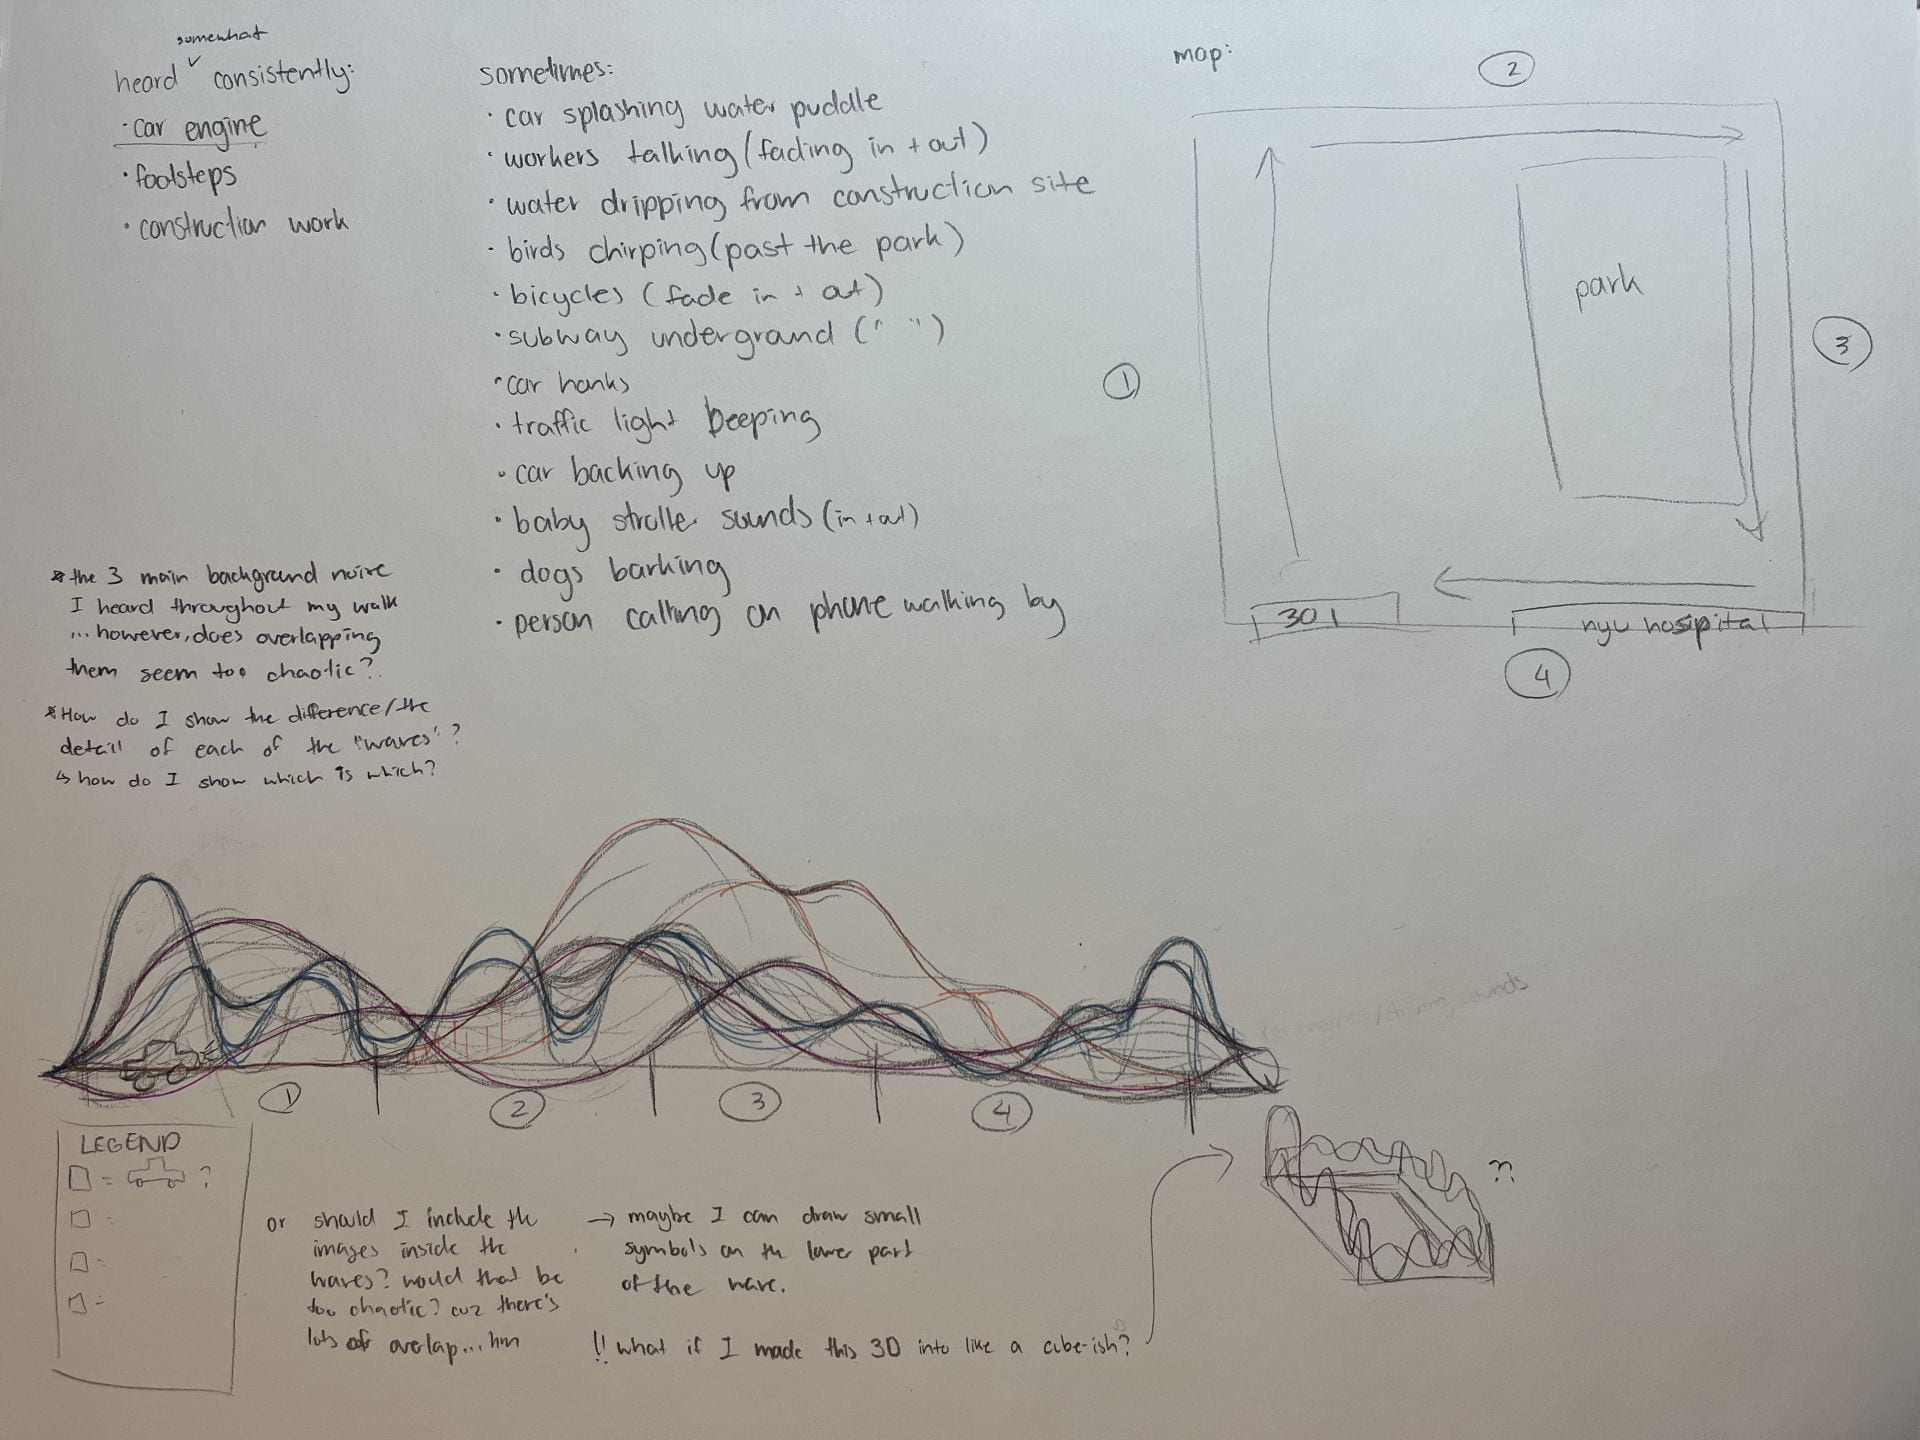 somewhat
heard ✓ consistently:
· car engine
· footsteps
· construction work
sometimes:
· car splashing water puddle
· workers talking (fading in + out)
· water dripping from construction site
· birds chirping (past the park)
· bicycles (fade in + out)
· subway undergrand (" ")
· car honks
· traffic light beeping
· car backing up
· baby stroller sounds (in + out)
· dogs barking
· person calling on phone walking by
map:
2
park
1
3
301
nyu hosipital
4
* the 3 main background noise
I heard throughout my walk
... however, does overlapping
them seem too chaotic?
* How do I show the difference/the
detail of each of the "waves"?
↳ how do I show which is which?
1
2
3
4
LEGEND
= ?
=
=
=
or should I include the
images inside the
waves? would that be
too chaotic? cuz there's
lots of overlap... hm
→ maybe I can draw small
symbols on the lower part
of the wave.
!! what if I made this 3D into like a cube-ish?
??